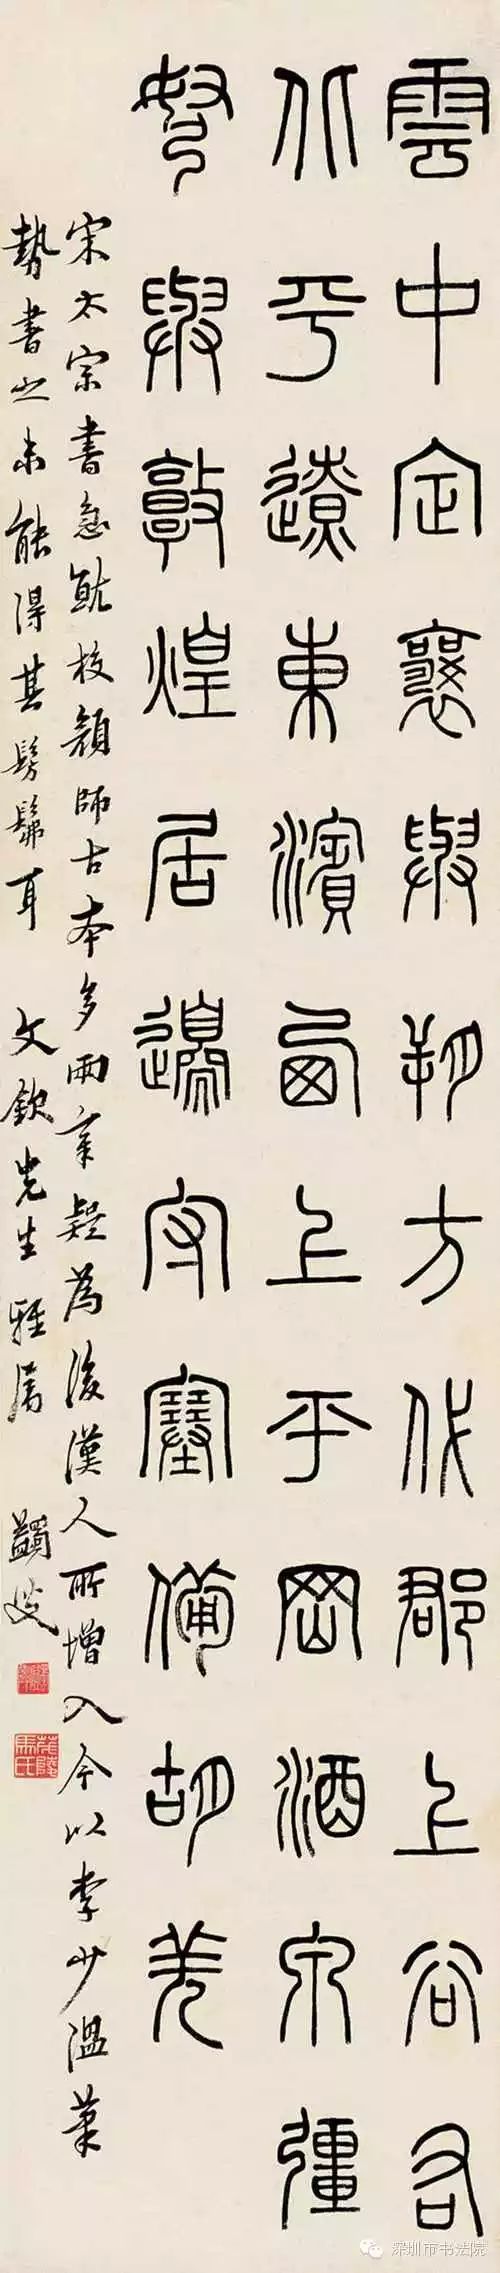 雲中定襄與朔方代郡上谷右
北平遼東濱西上平岡酒泉彊
弩與敦煌居邊守塞備胡羌
宋太宗書急就校顏師古本多兩章疑為後漢人所增入今以李少溫筆
勢書之未能得其髣髴耳 文欽先生雅屬 蠲叟
茂陵馬氏
深圳市书法院